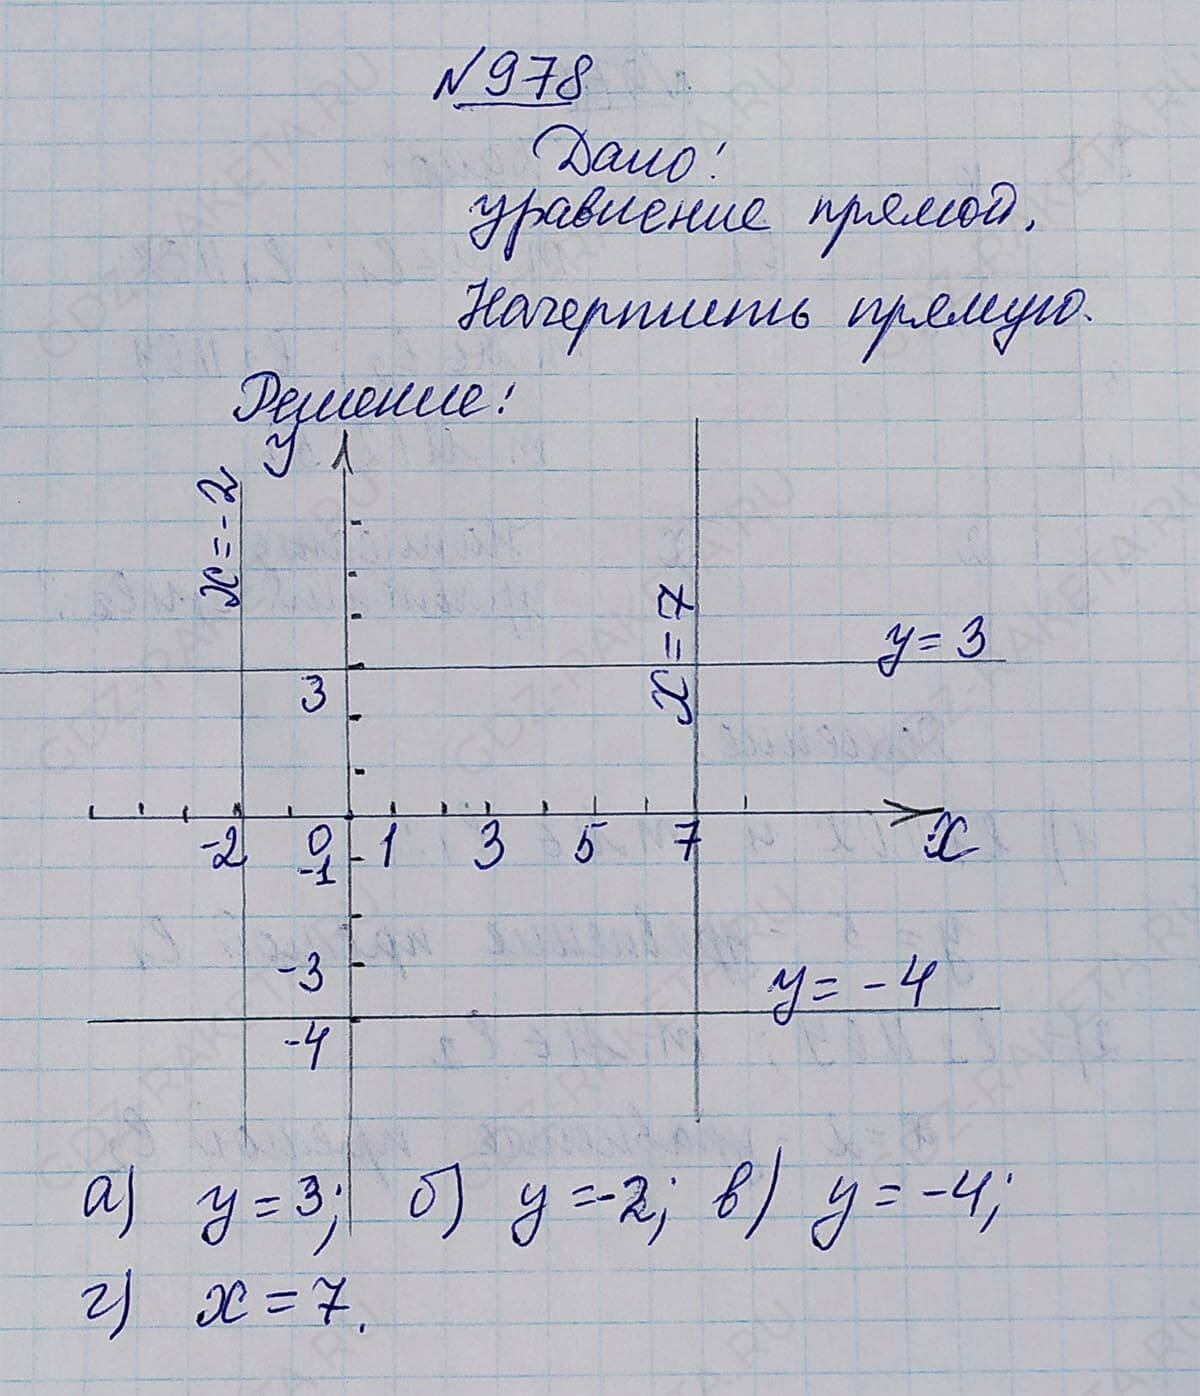 №978
Дано:
уравнение прямой.
Начертить прямую.
Решение:
y
x=-2
x=7
y=3
3
-2 0 1 3 5 7 x
-1
-3
y=-4
-4
а) y=3; б) y=-2; в) y=-4;
г) x=7.
GDZ-RAKETA.RU